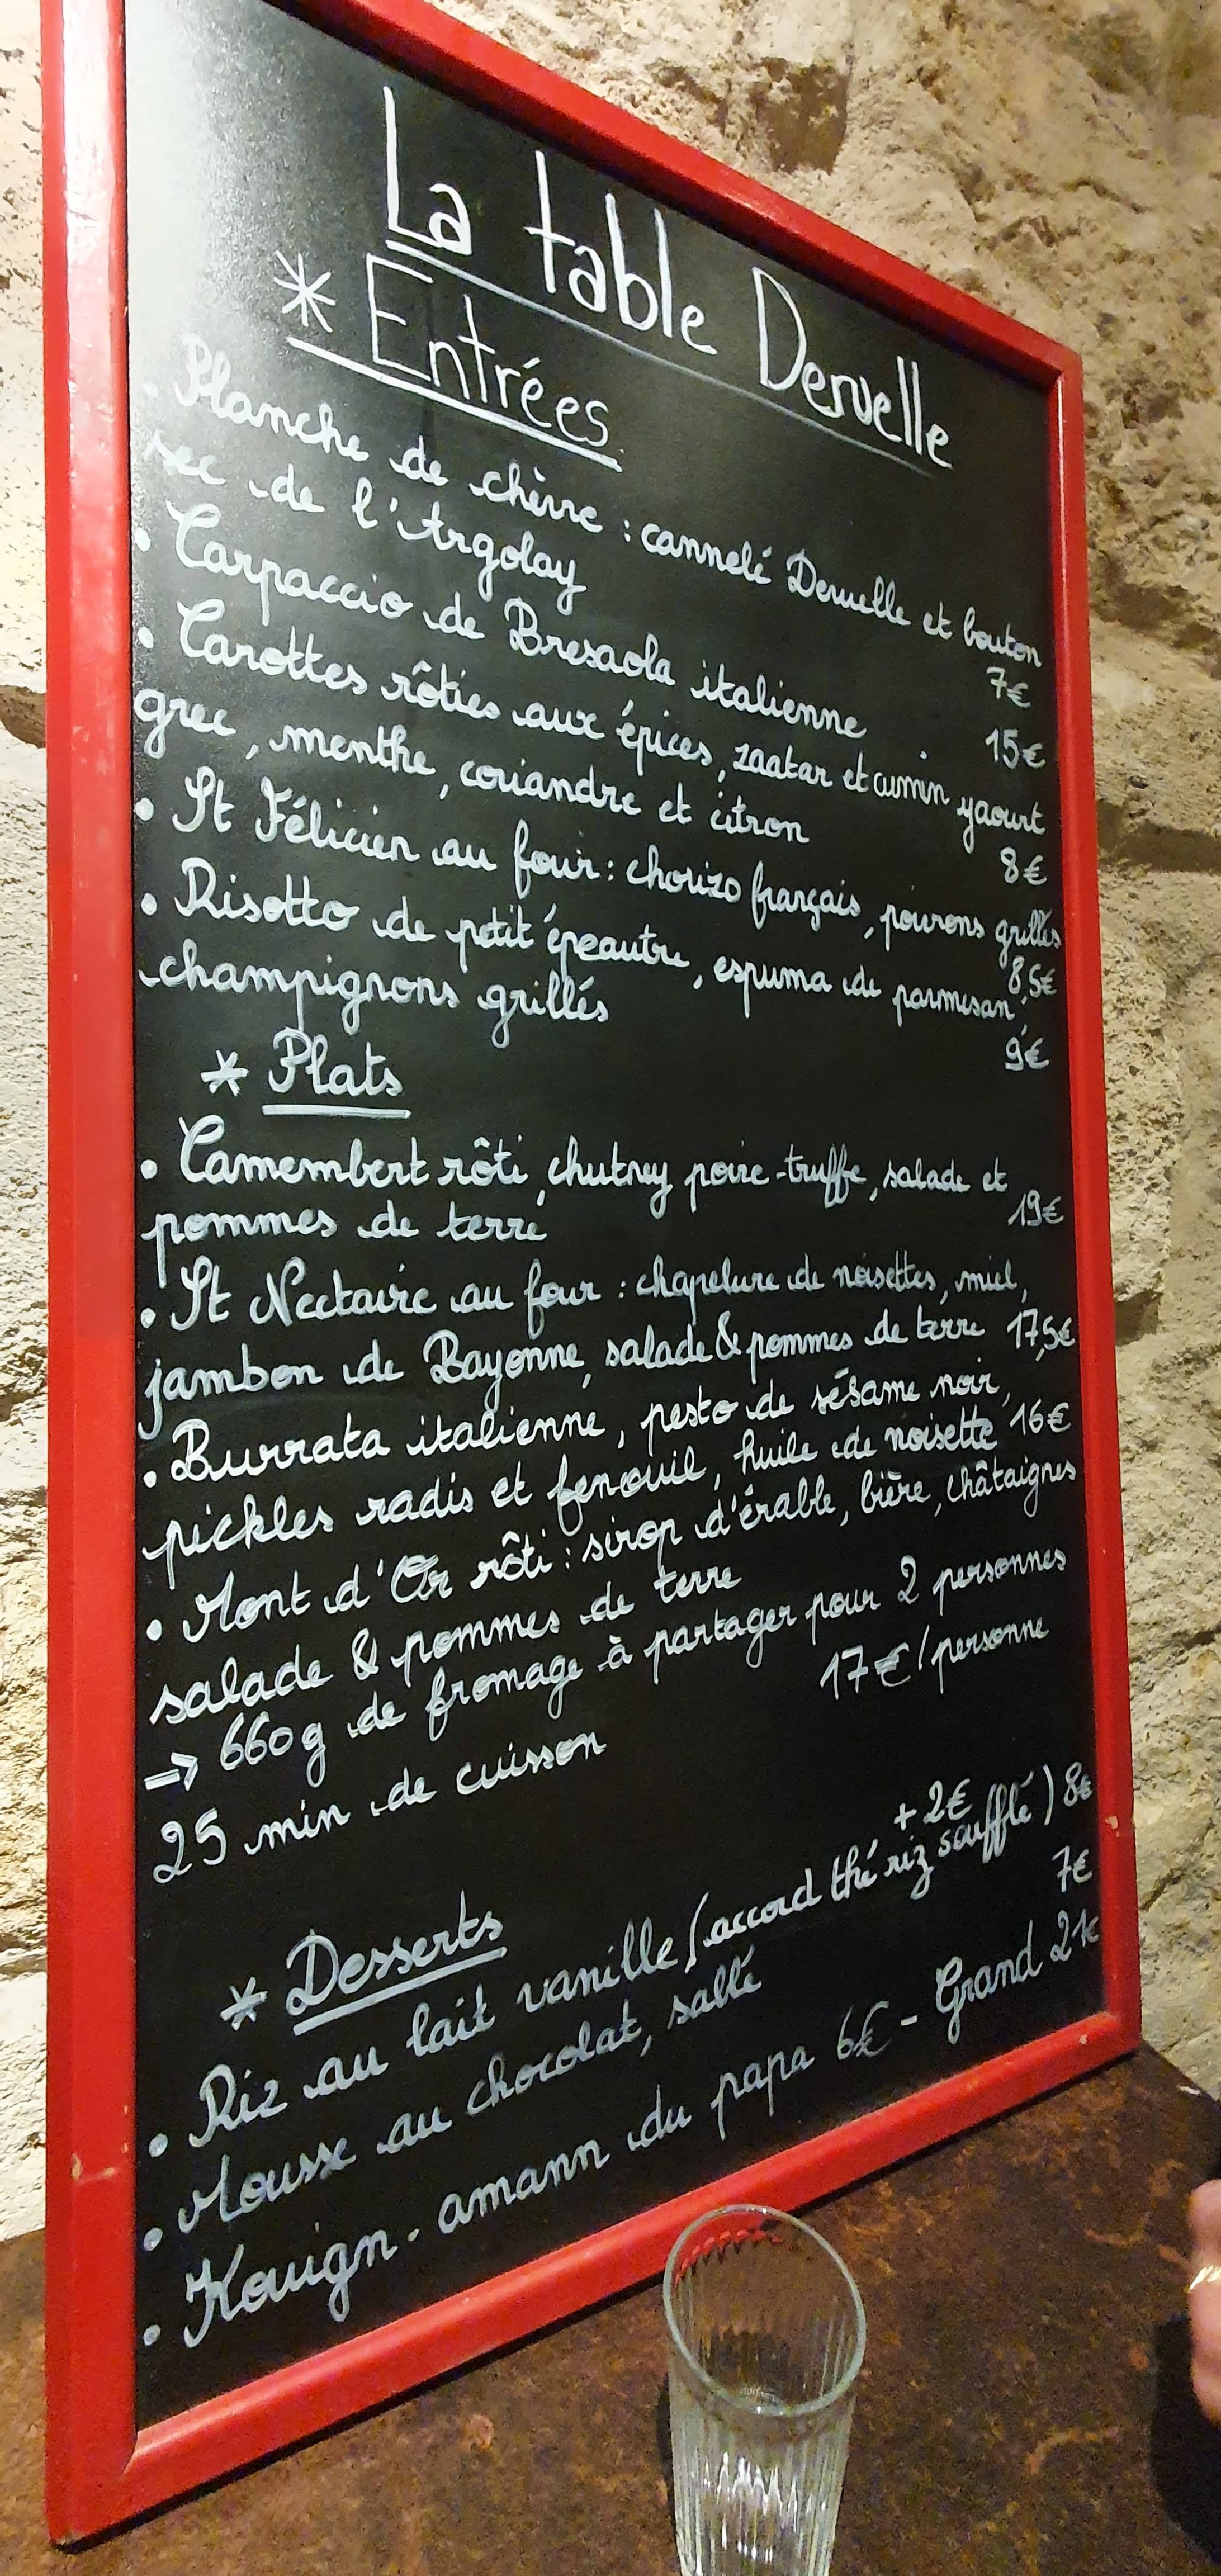 La table Dervelle
* Entrées
• Planche de chèvre : cannelé Dervelle et bouton
sec de l'Argolay 7€
• Carpaccio de Bresaola italienne 15€
• Carottes rôties aux épices, zaatar et cumin yaourt
grec, menthe, coriandre et citron 8€
• St Félicien au four : chorizo français, poivrons grillés
8,5€
• Risotto de petit épeautre, espuma de parmesan,
champignons grillés 9€
* Plats
• Camembert rôti, chutney poire-truffe, salade et
pommes de terre 19€
• St Nectaire au four : chapelure de noisettes, miel,
jambon de Bayonne, salade & pommes de terre 17,5€
• Burrata italienne, pesto de sésame noir,
pickles radis et fenouil, huile de noisette 16€
• Mont d'Or rôti : sirop d'érable, bière, châtaignes
salade & pommes de terre
→ 660g de fromage à partager pour 2 personnes
25 min de cuisson 17€/personne
* Desserts
+ 2€
• Riz au lait vanille (accord thé riz soufflé) 8€
• Mousse au chocolat, sablé 7€
• Kouign-amann du papa 6€ - Grand 21€